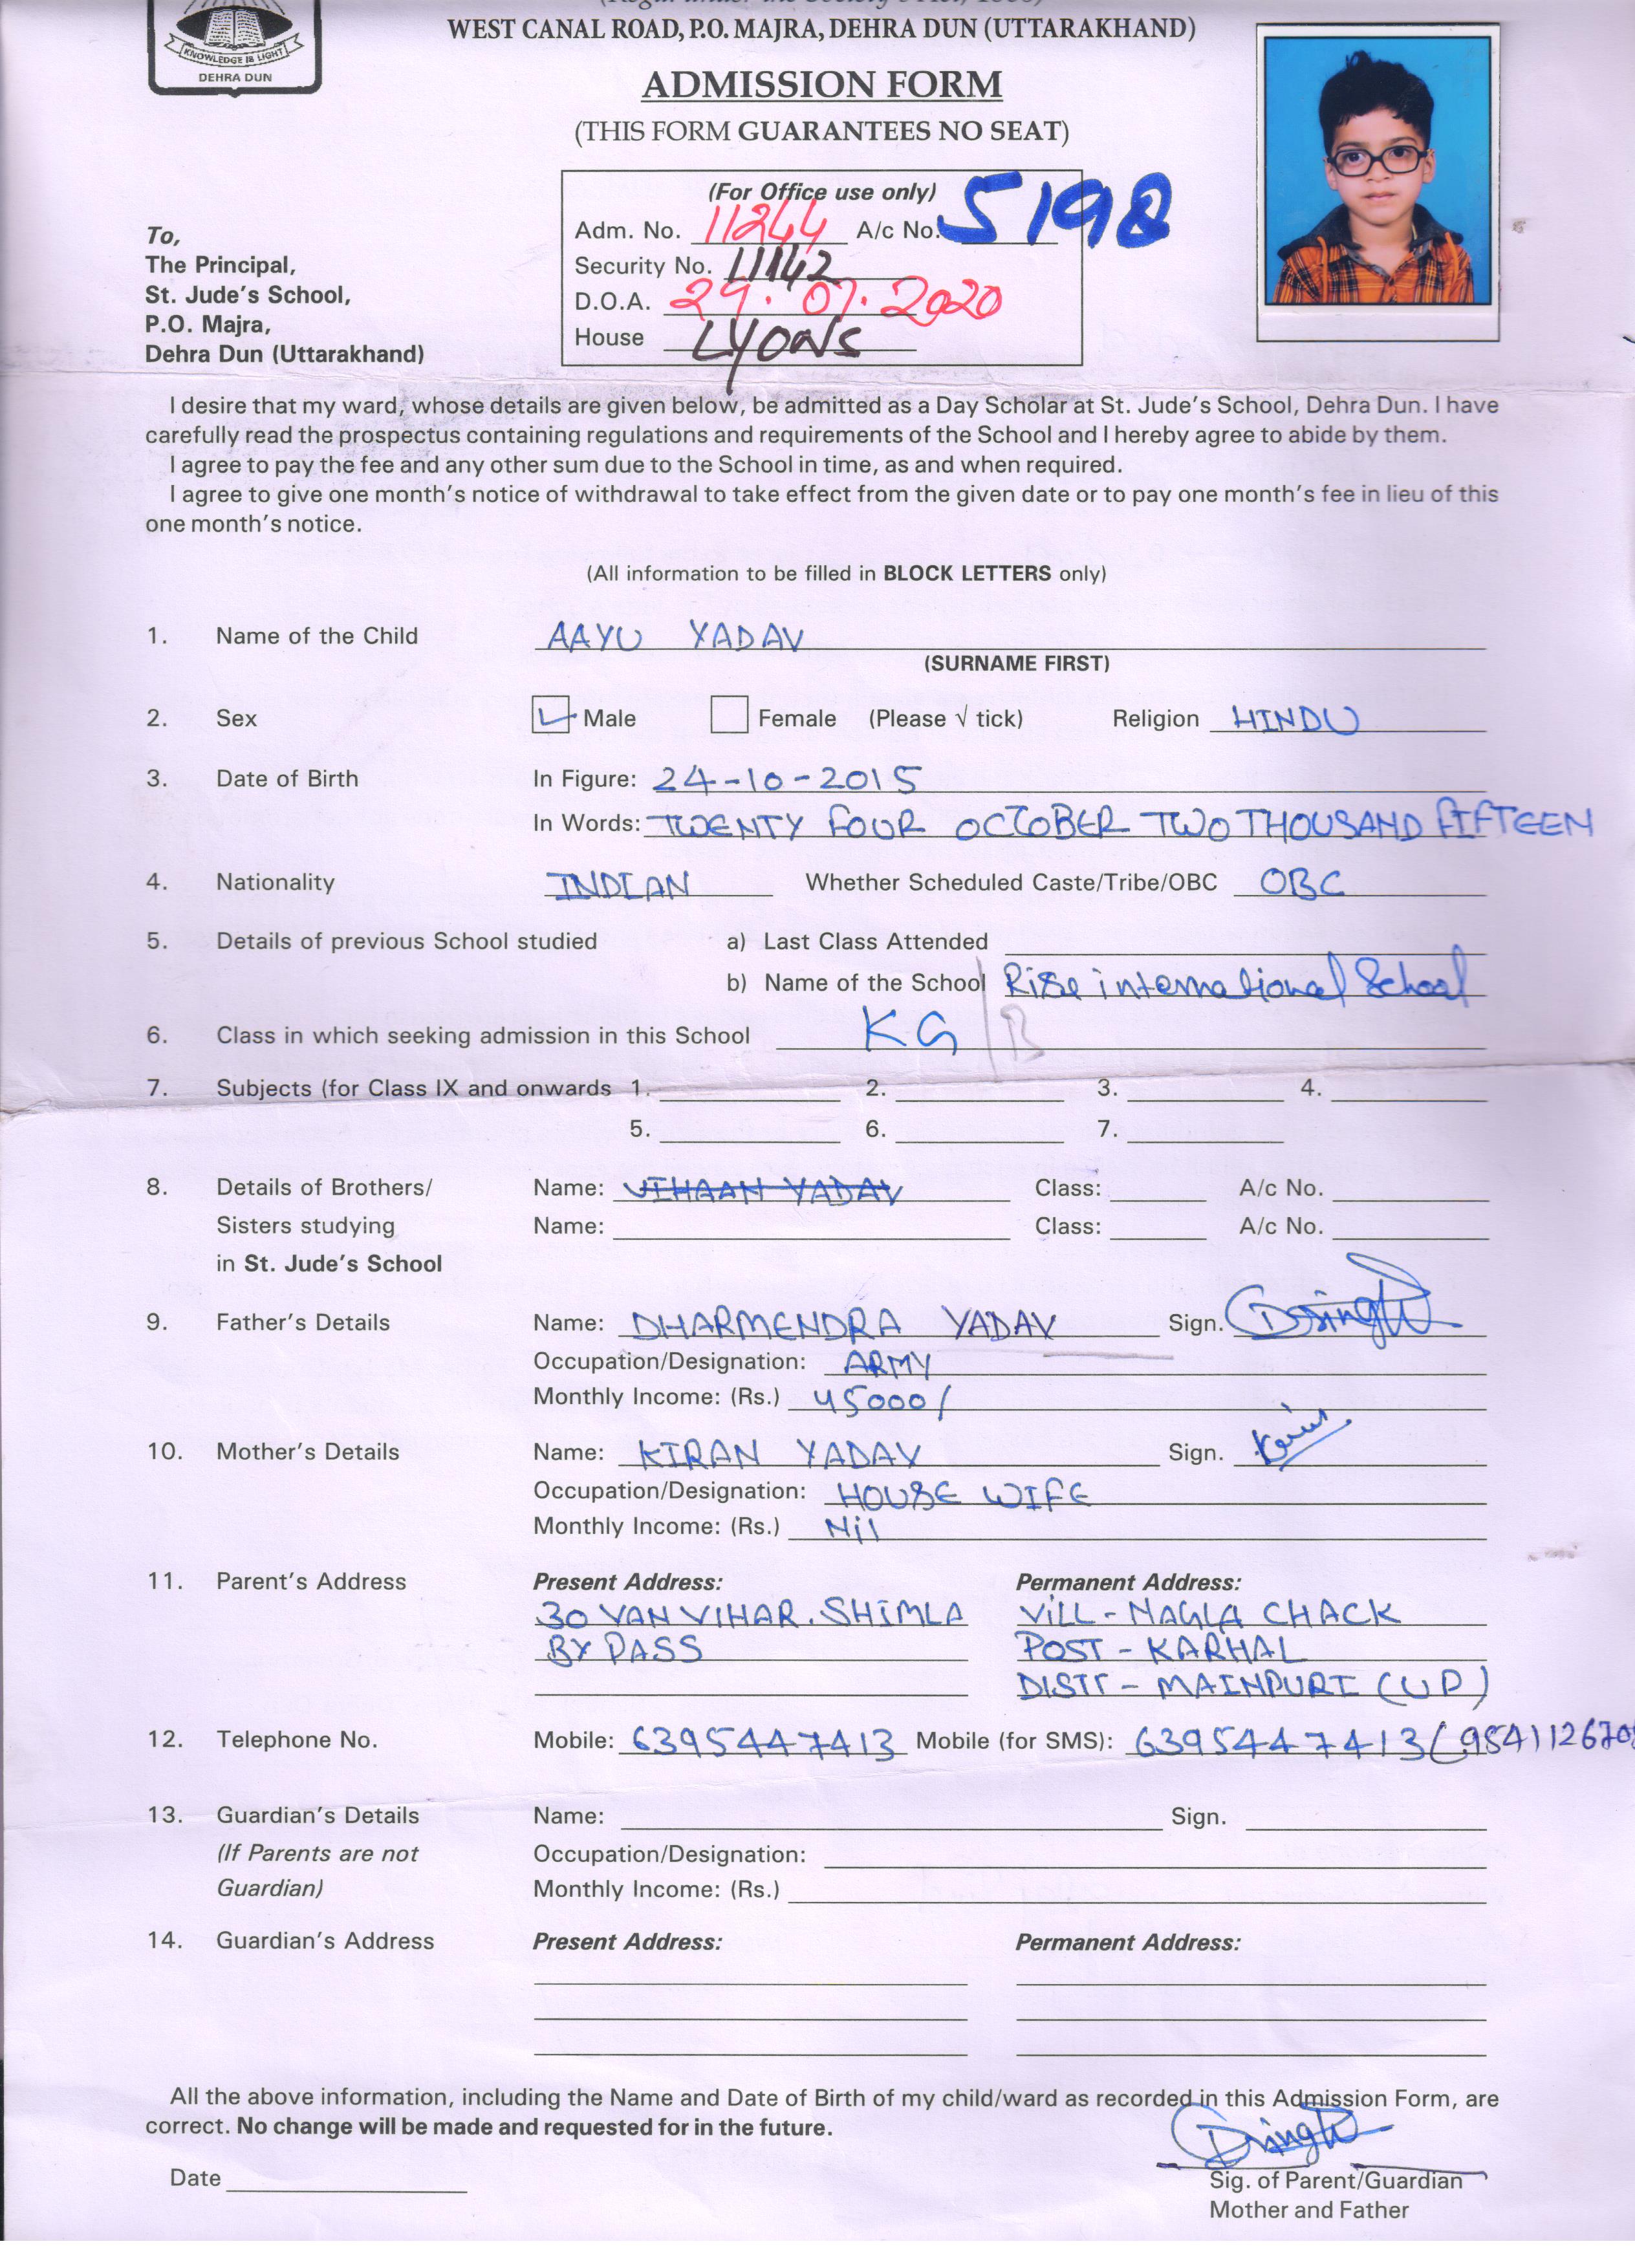 KNOWLEDGE IS LIGHT
DEHRA DUN
WEST CANAL ROAD, P.O. MAJRA, DEHRA DUN (UTTARAKHAND)
ADMISSION FORM
(THIS FORM GUARANTEES NO SEAT)
(For Office use only)
Adm. No. 11244 A/c No. 5198
Security No. 11142
D.O.A. 29.07.2020
House Lyons
To,
The Principal,
St. Jude's School,
P.O. Majra,
Dehra Dun (Uttarakhand)
I desire that my ward, whose details are given below, be admitted as a Day Scholar at St. Jude's School, Dehra Dun. I have
carefully read the prospectus containing regulations and requirements of the School and I hereby agree to abide by them.
I agree to pay the fee and any other sum due to the School in time, as and when required.
I agree to give one month's notice of withdrawal to take effect from the given date or to pay one month's fee in lieu of this
one month's notice.
(All information to be filled in BLOCK LETTERS only)
1. Name of the Child AAYU YADAV
(SURNAME FIRST)
2. Sex Male Female (Please √ tick) Religion HINDU
3. Date of Birth In Figure: 24-10-2015
In Words: TWENTY FOUR OCTOBER TWO THOUSAND FIFTEEN
4. Nationality INDIAN Whether Scheduled Caste/Tribe/OBC OBC
5. Details of previous School studied a) Last Class Attended
b) Name of the School Rise international School
6. Class in which seeking admission in this School KG/B
7. Subjects (for Class IX and onwards 1. 2. 3. 4.
5. 6. 7.
8. Details of Brothers/ Name: VIHAAN YADAV Class: A/c No.
Sisters studying Name: Class: A/c No.
in St. Jude's School
9. Father's Details Name: DHARMENDRA YADAV Sign. Dsingh
Occupation/Designation: ARMY
Monthly Income: (Rs.) 45000/
10. Mother's Details Name: KIRAN YADAV Sign. Kiran
Occupation/Designation: HOUSE WIFE
Monthly Income: (Rs.) Nil
11. Parent's Address Present Address: Permanent Address:
30 VAN VIHAR. SHIMLA VILL - NAGLA CHACK
BY PASS POST - KARHAL
DISTT - MAINPURI (UP)
12. Telephone No. Mobile: 6395447413 Mobile (for SMS): 6395447413 (954112670
13. Guardian's Details Name: Sign.
(If Parents are not Occupation/Designation:
Guardian) Monthly Income: (Rs.)
14. Guardian's Address Present Address: Permanent Address:
All the above information, including the Name and Date of Birth of my child/ward as recorded in this Admission Form, are
correct. No change will be made and requested for in the future.
Dsingh
Date Sig. of Parent/Guardian
Mother and Father